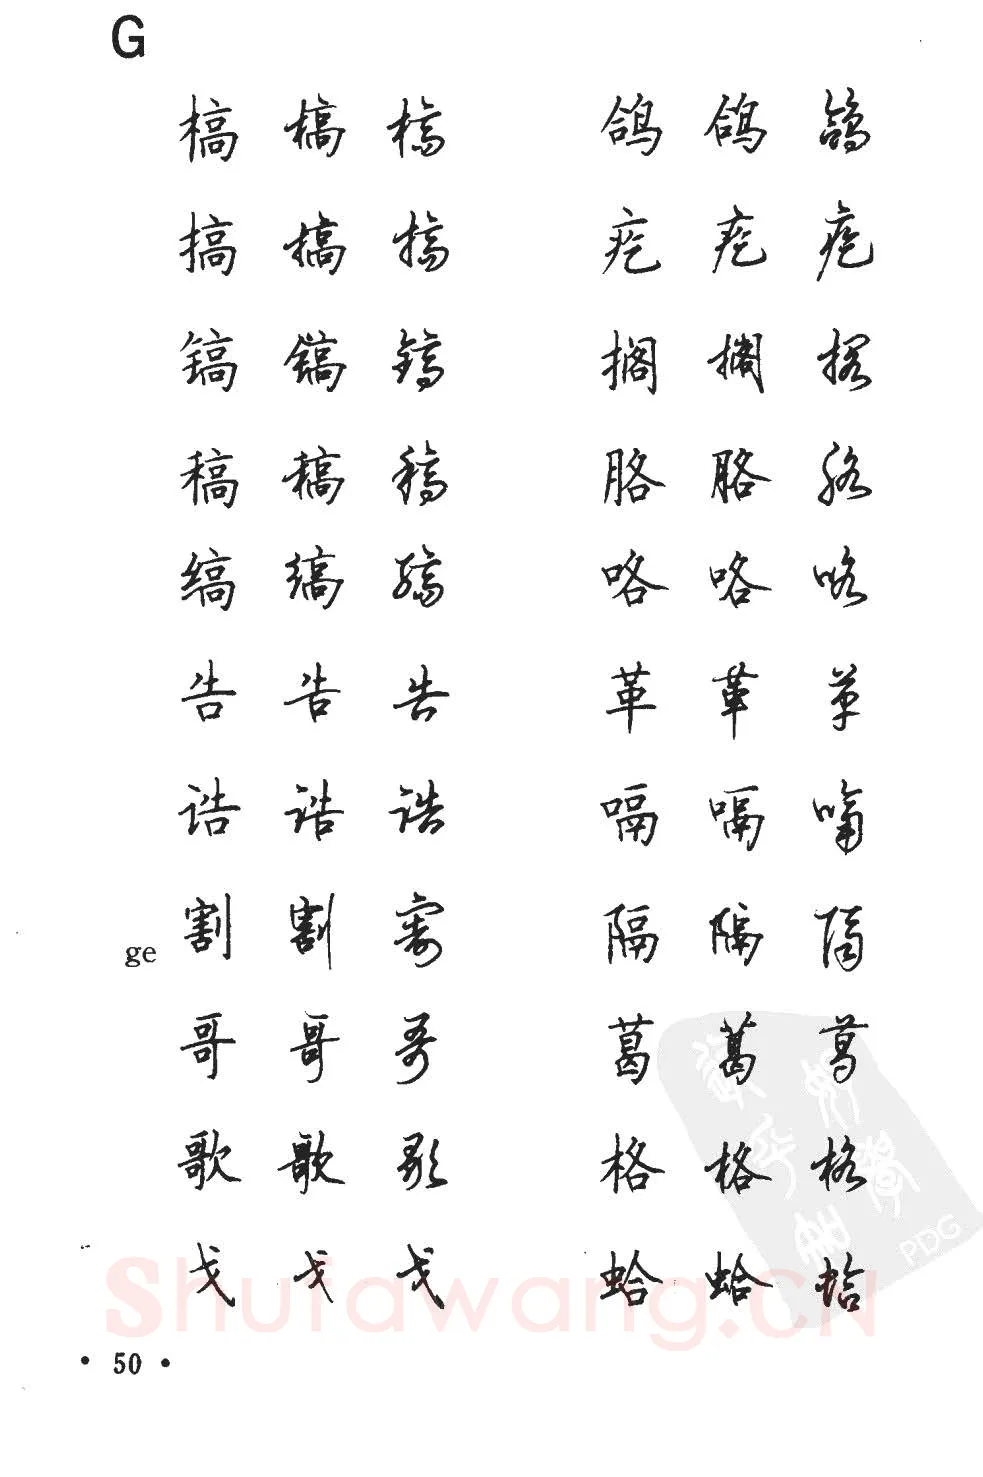 G
槁 槁 槁
搞 搞 搞
镐 镐 镐
稿 稿 稿
缟 缟 缟
告 告 告
诰 诰 诰
ge 割 割 割
哥 哥 哥
歌 歌 歌
戈 戈 戈
鸽 鸽 鸽
疙 疙 疙
搁 搁 搁
胳 胳 胳
咯 咯 咯
革 革 革
嗝 嗝 嗝
隔 隔 隔
葛 葛 葛
格 格 格
蛤 蛤 蛤
Shufawang.CN
PDG
· 50 ·